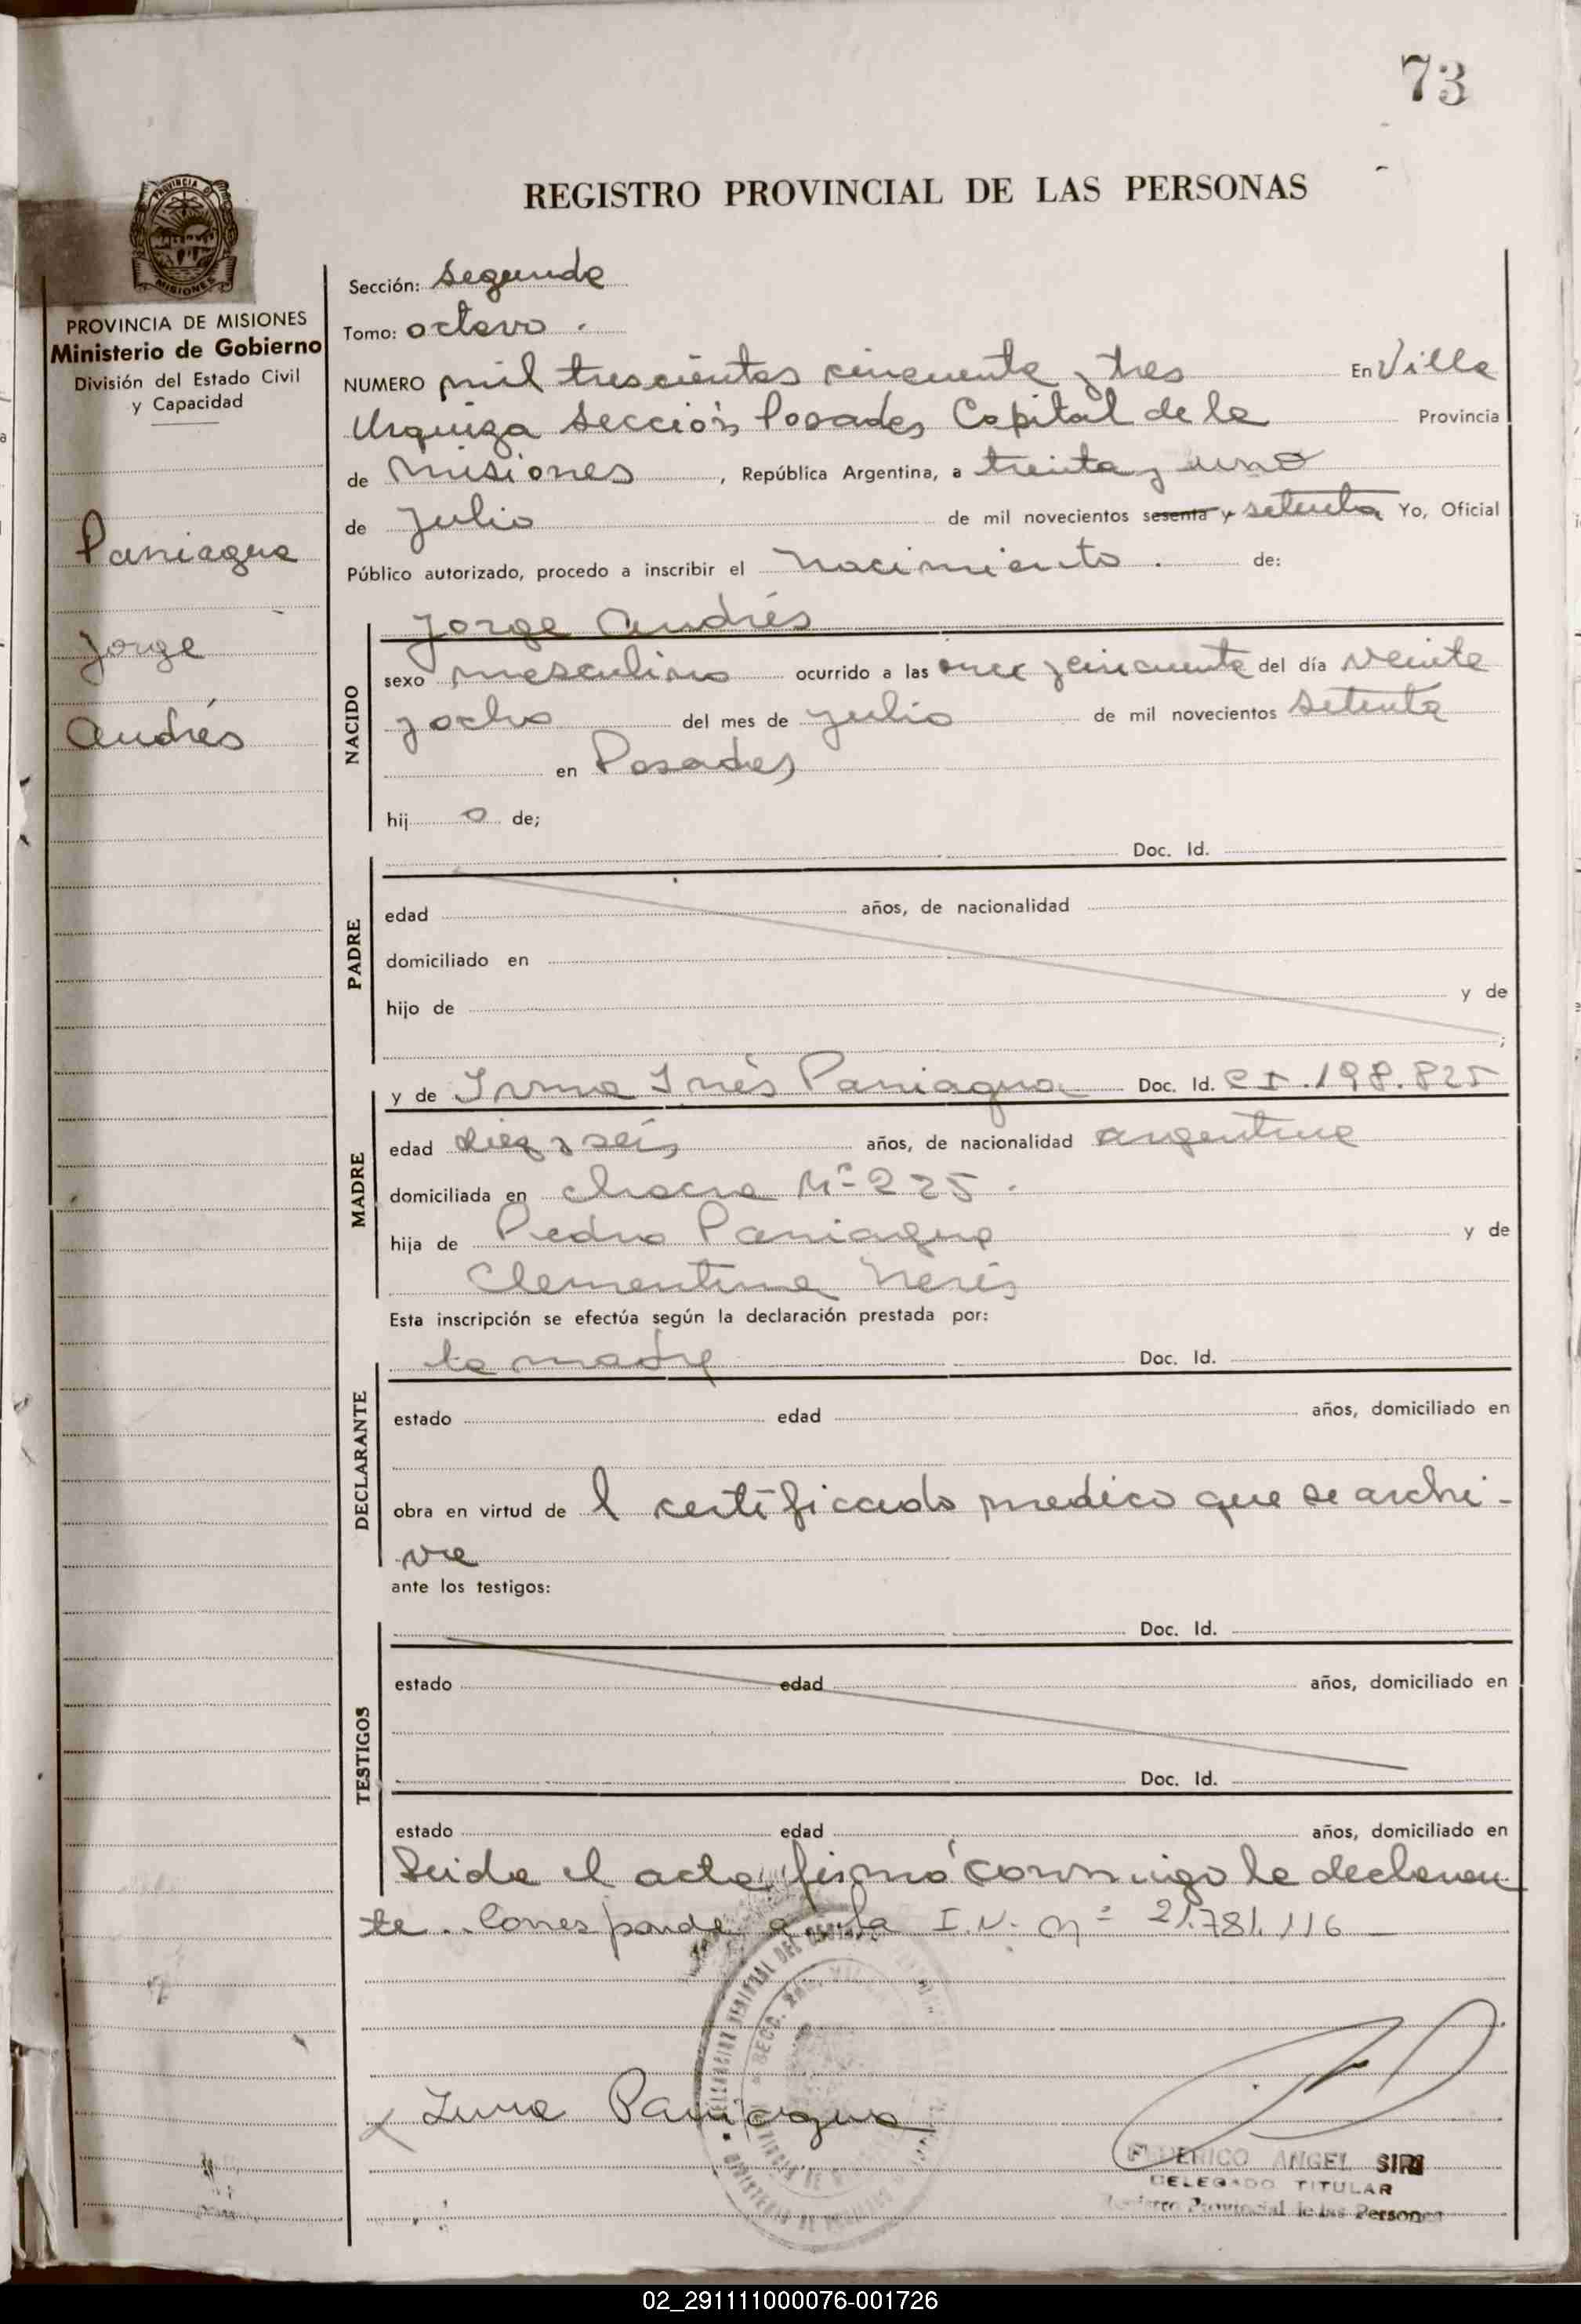 73
REGISTRO PROVINCIAL DE LAS PERSONAS
PROVINCIA DE
MISIONES
PROVINCIA DE MISIONES
Ministerio de Gobierno
División del Estado Civil
y Capacidad
Paniagua
Jorge
Andrés
Sección: segunda
Tomo: octavo .
NUMERO mil trescientos cincuenta y tres En Villa
Urquiza sección Posadas Capital de la Provincia
de Misiones , República Argentina, a treinta y uno
de Julio de mil novecientos sesenta y setenta Yo, Oficial
Público autorizado, procedo a inscribir el nacimiento . de:
NACIDO
Jorge Andrés
sexo masculino ocurrido a las once y cincuenta del día veinte
y ocho del mes de julio de mil novecientos setenta
en Posadas
hij o de;
PADRE
Doc. Id.
edad años, de nacionalidad
domiciliado en
hijo de y de
;
MADRE
y de Irma Inés Paniagua Doc. Id. CI. 198.825
edad diez y seis años, de nacionalidad argentina
domiciliada en chacra Nº 225 .
hija de Pedro Paniagua y de
Clementina Neris
Esta inscripción se efectúa según la declaración prestada por:
DECLARANTE
la madre Doc. Id.
estado edad años, domiciliado en
obra en virtud de l certificado medico que se archi-
va
ante los testigos:
TESTIGOS
Doc. Id.
estado edad años, domiciliado en
Doc. Id.
estado edad años, domiciliado en
Leida el acta, firmó conmigo la declaran
te .. Corresponde a la I.N. nº 21.781.116
x Irma Paniagua
FEDERICO ANGEL SIRI
DELEGADO TITULAR
Registro Provincial de las Personas
02_291111000076-001726